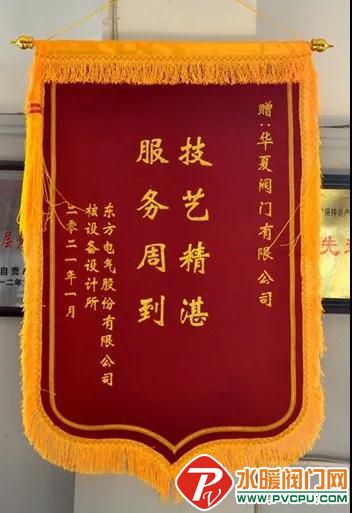 赠：华夏阀门有限公司
技艺精湛
服务周到
东方电气股份有限公司
核设备设计所
二零二一年一月
自贡
一二年
保持共产
先
水暖阀门网
www.PVCPU.com